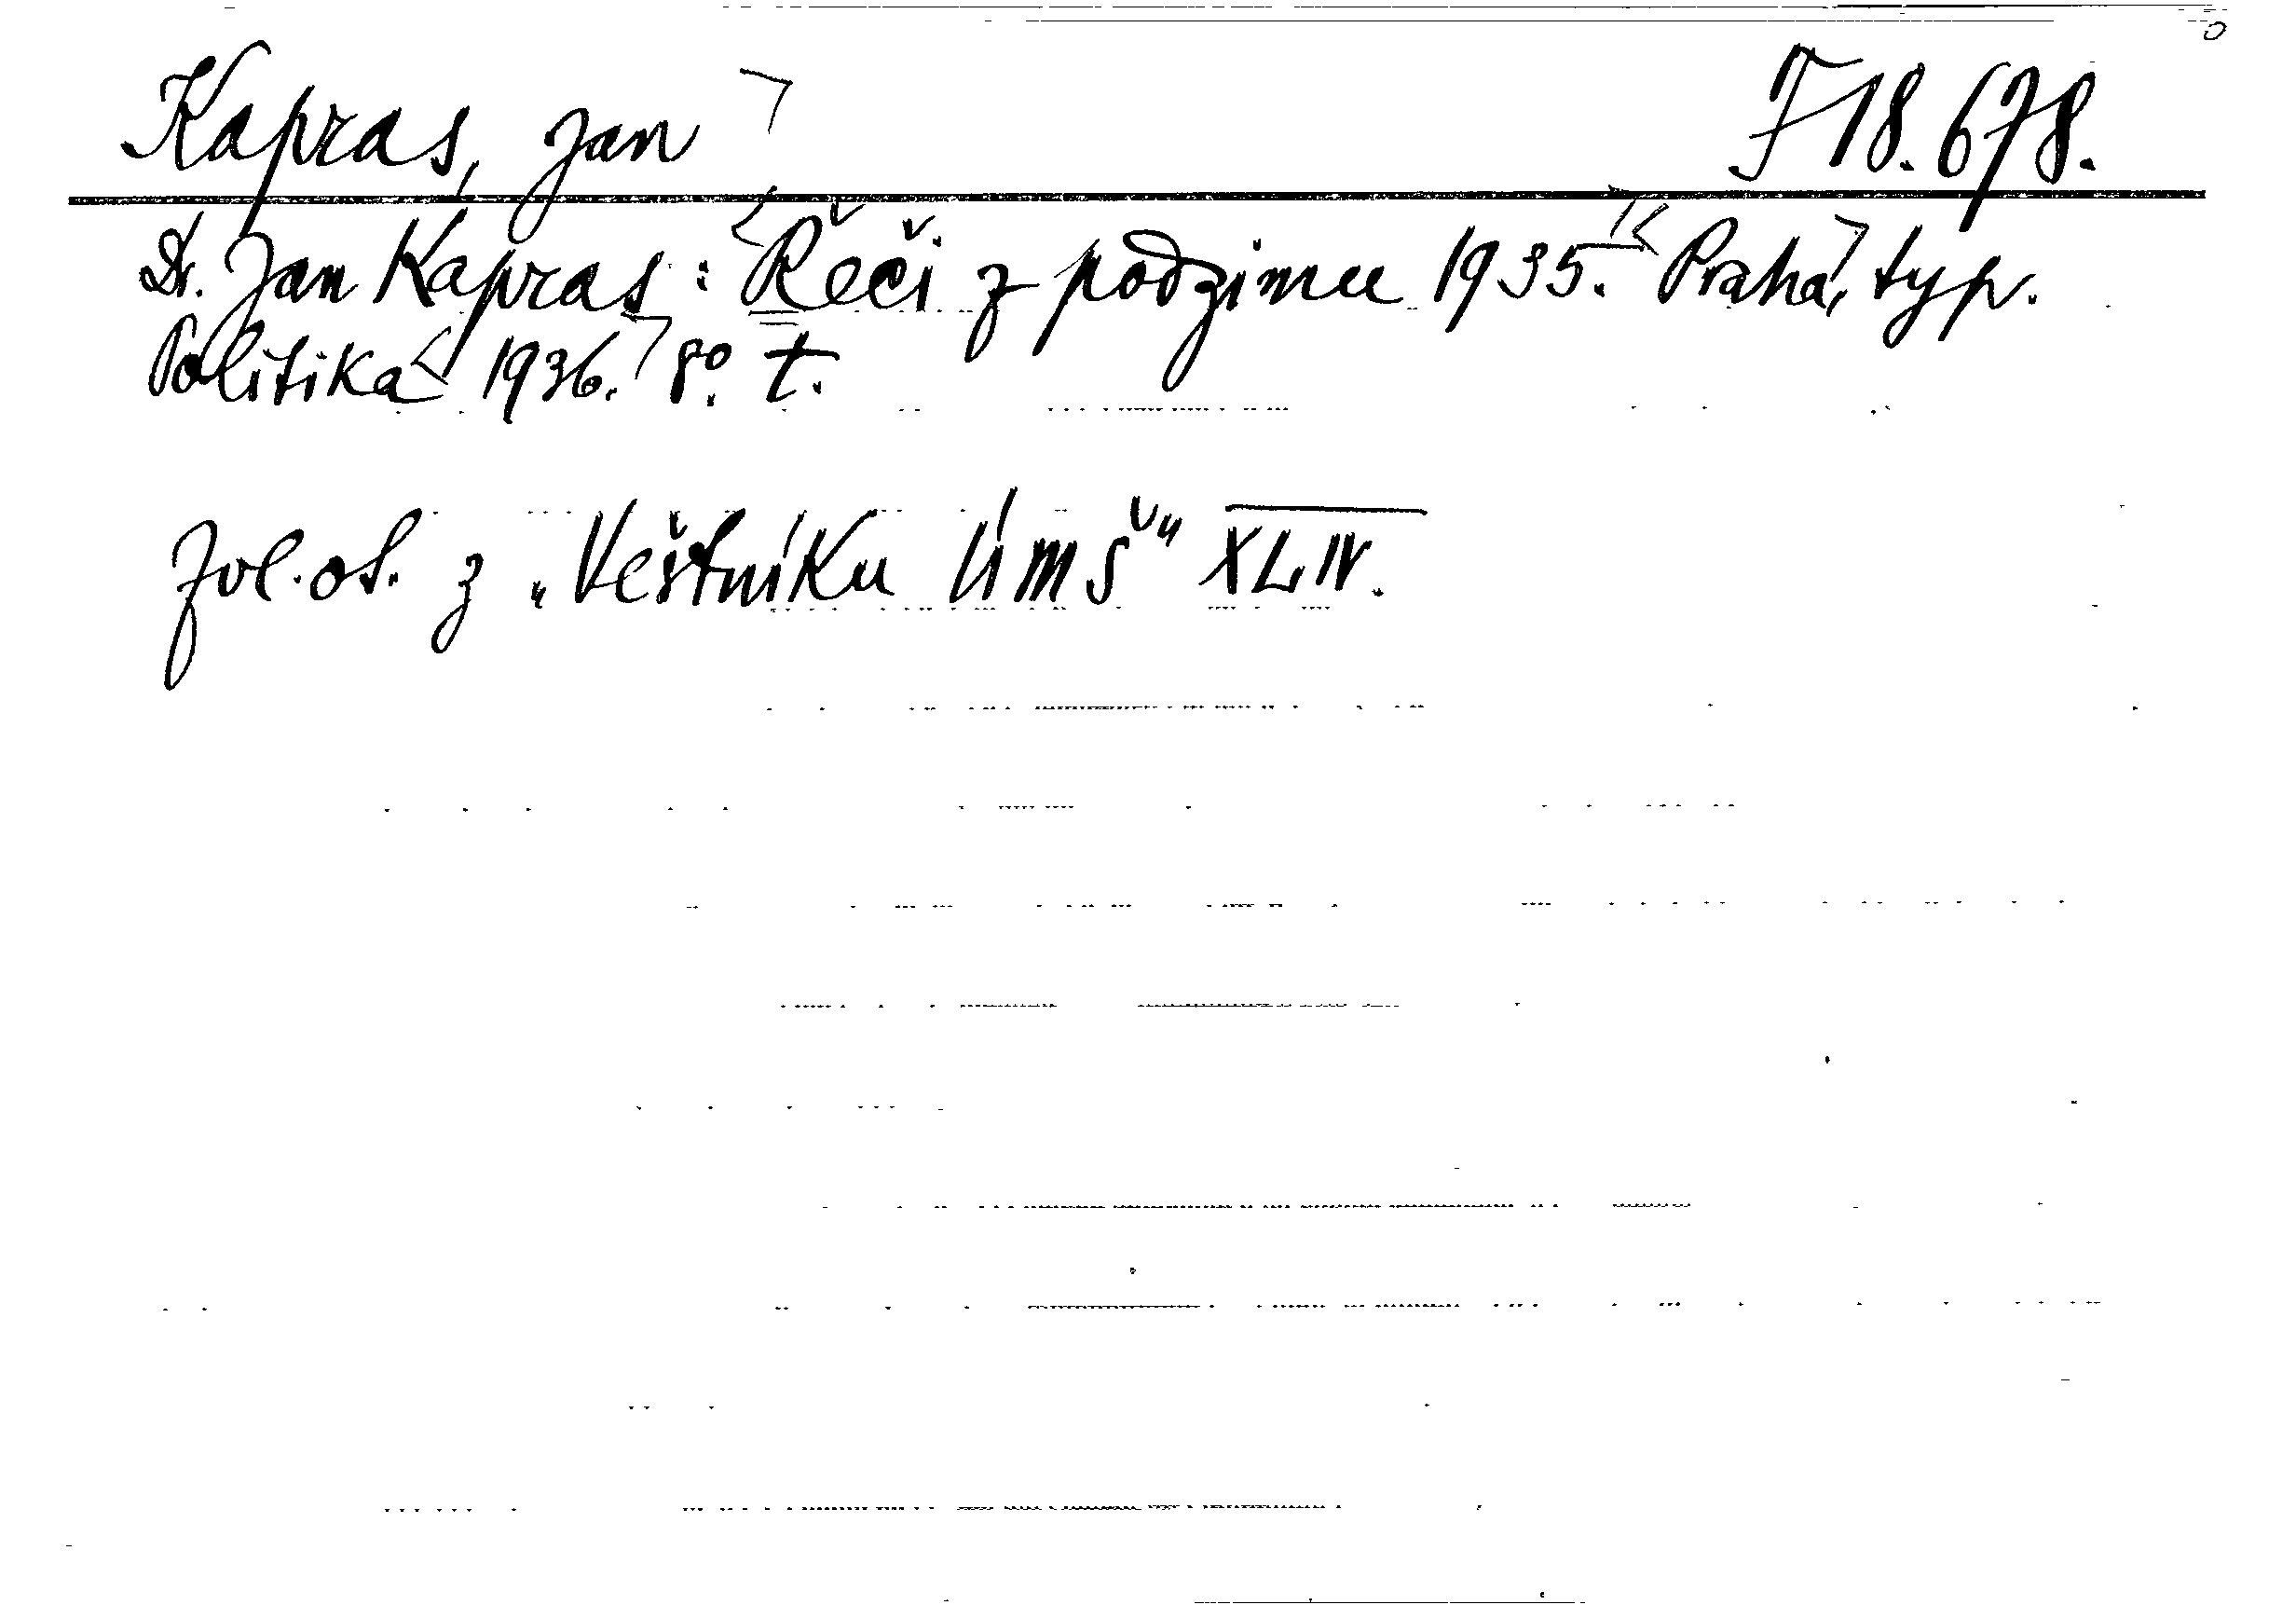 Kapras, Jan F 18.678.
Dr. Jan Kapras: Řeči z podzimu 1935. Praha, typ.
Politika 1936. 8° t.
Zvl. ot. z „Věstníku ÚMŠ" XLIV.